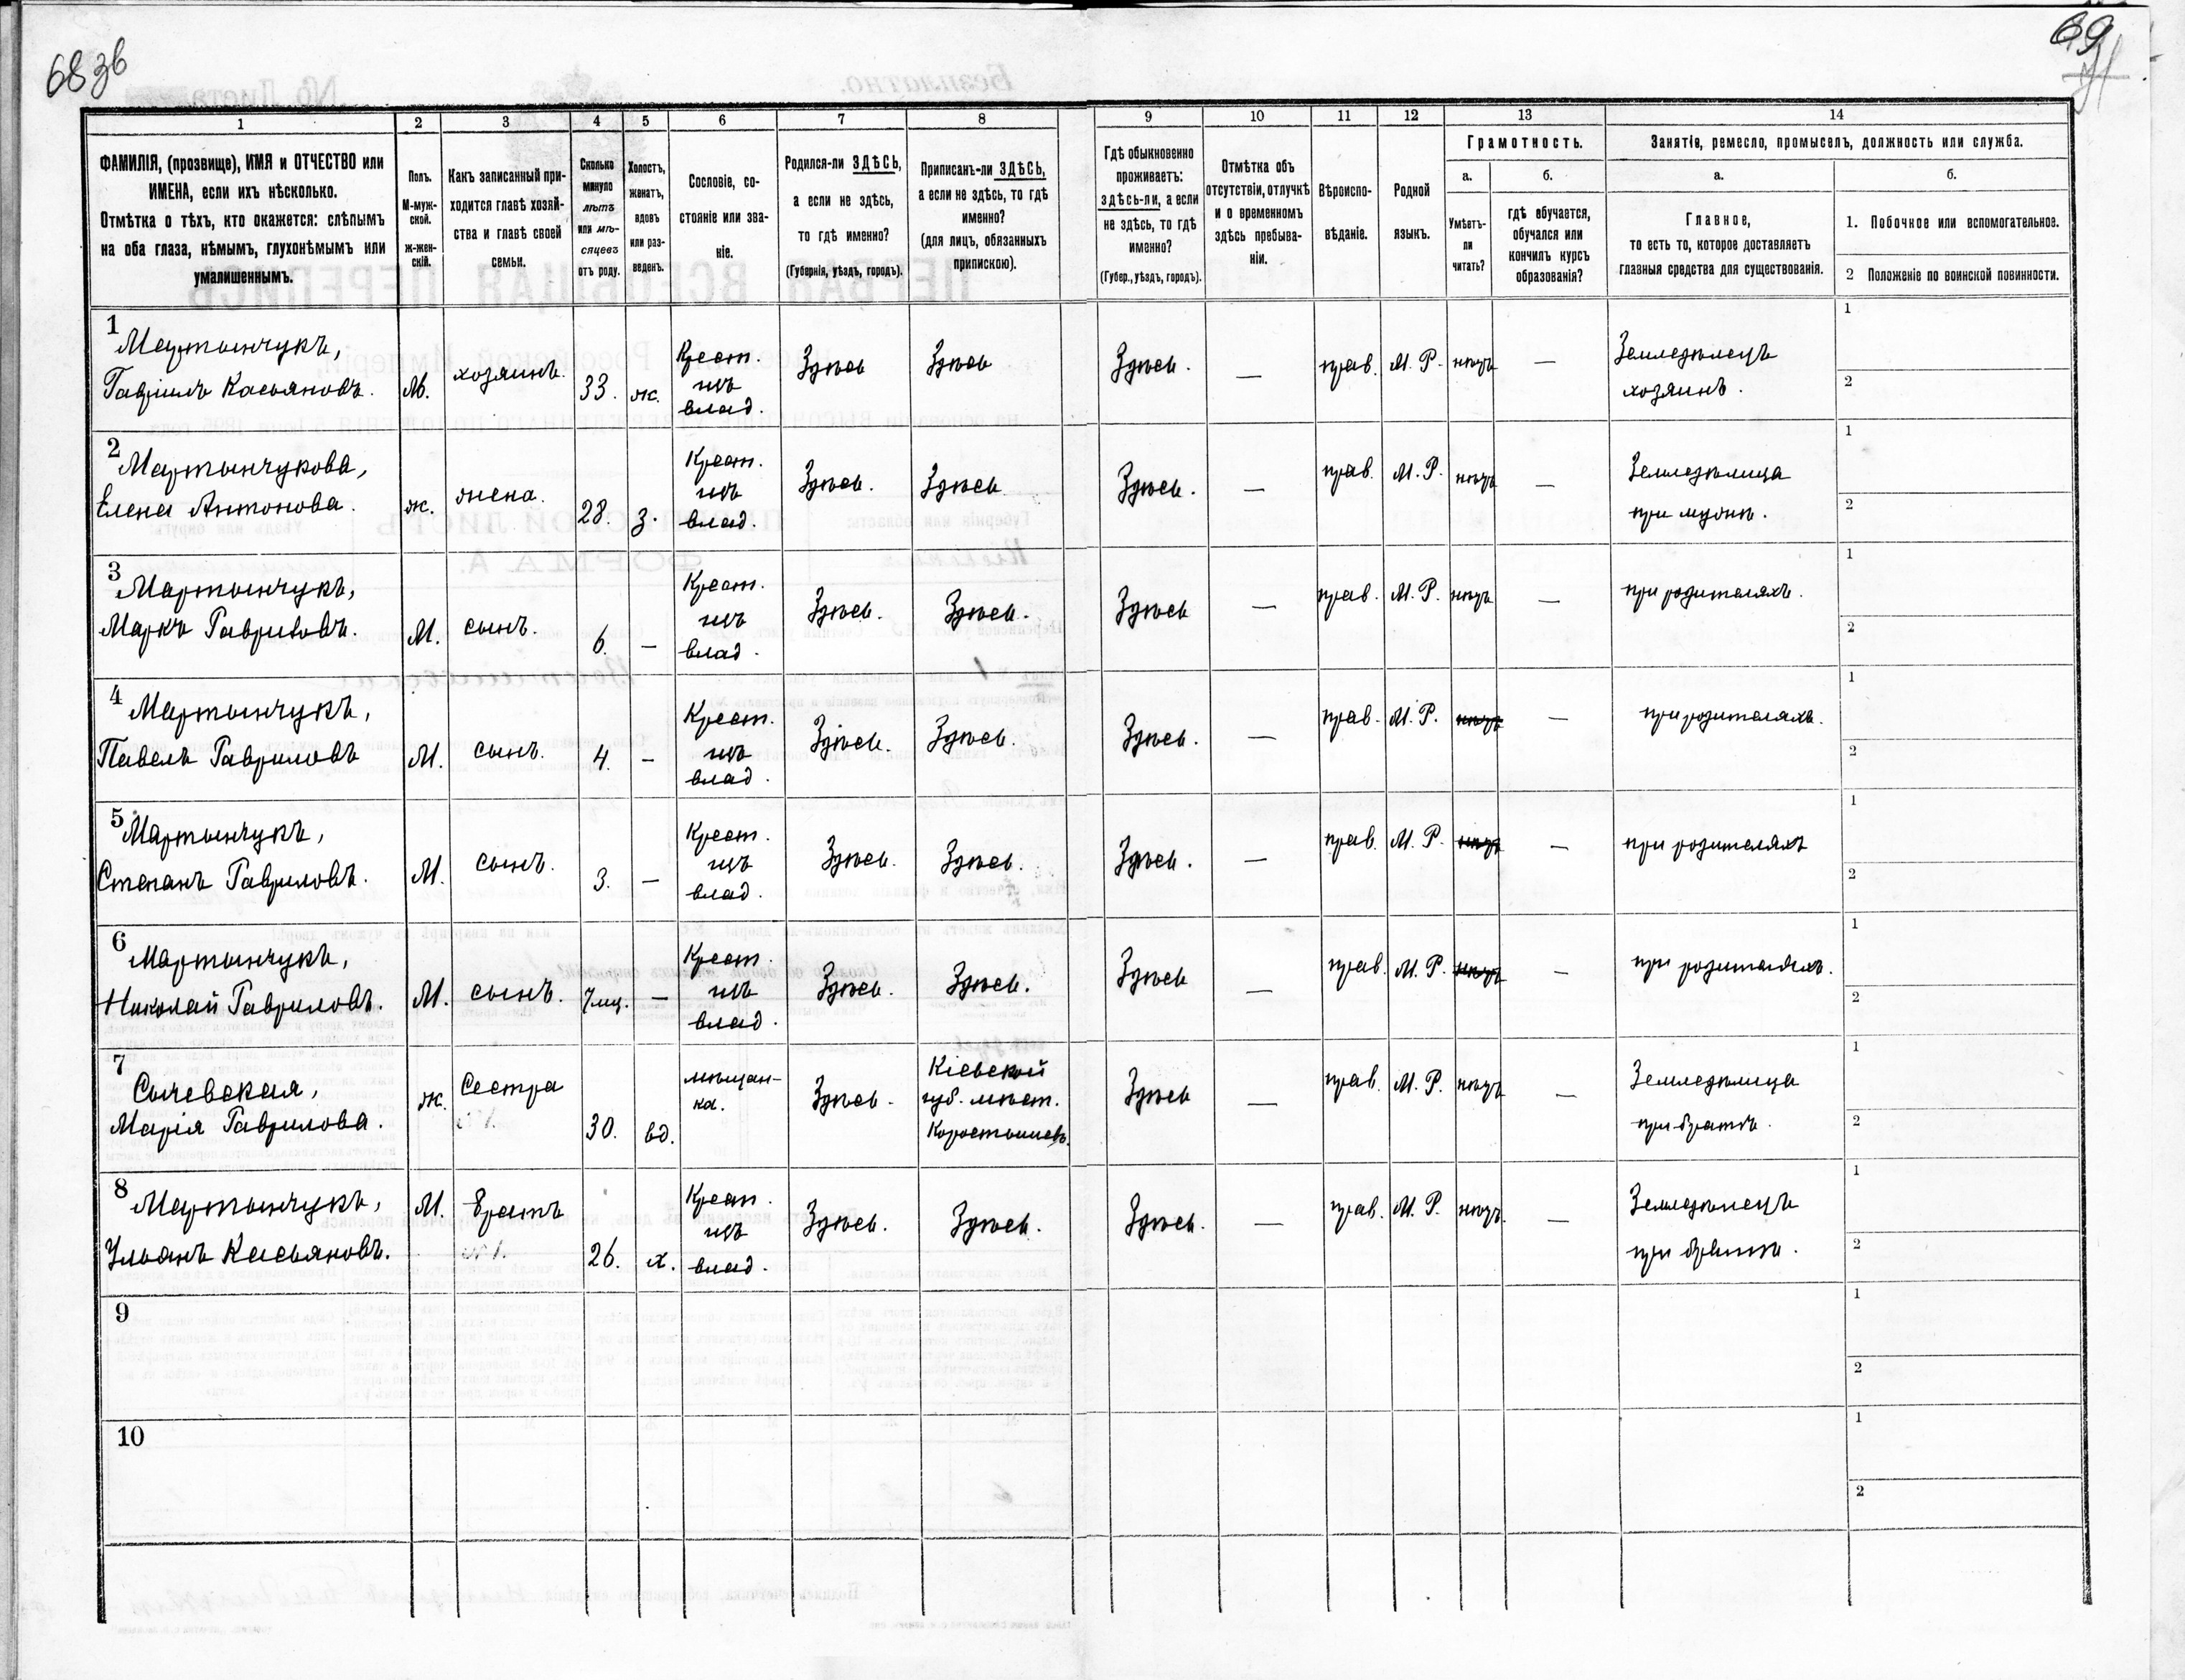 68 зв
69
1
2
3
4
5
6
7
8
9
10
11
12
13
14
ФАМИЛІЯ, (прозвище), ИМЯ и ОТЧЕСТВО или
ИМЕНА, если ихъ нѣсколько.
Отмѣтка о тѣхъ, кто окажется: слѣпымъ
на оба глаза, нѣмымъ, глухонѣмымъ или
умалишеннымъ.
Полъ.
М-муж-
ской.
ж-жен-
скій.
Какъ записанный при-
ходится главѣ хозяй-
ства и главѣ своей
семьи.
Сколько
минуло
лѣтъ
или мѣ-
сяцевъ
отъ роду.
Холостъ,
женатъ,
вдовъ
или раз-
веденъ.
Сословіе, со-
стояніе или зва-
ніе.
Родился-ли ЗДѢСЬ,
а если не здѣсь,
то гдѣ именно?
(Губернія, уѣздъ, городъ).
Приписанъ-ли ЗДѢСЬ,
а если не здѣсь, то гдѣ
именно?
(для лицъ, обязанныхъ
припискою).
Гдѣ обыкновенно
проживаетъ:
здѣсь-ли, а если
не здѣсь, то гдѣ
именно?
(Губер., уѣздъ, городъ).
Отмѣтка объ
отсутствіи, отлучкѣ
и о временномъ
здѣсь пребыва-
ніи.
Вѣроиспо-
вѣданіе.
Родной
языкъ.
Грамотность.
а.
Умѣетъ-
ли
читать?
б.
гдѣ обучается,
обучался или
кончилъ курсъ
образованія?
Занятіе, ремесло, промыселъ, должность или служба.
а.
Главное,
то есть то, которое доставляетъ
главныя средства для существованія.
б.
1. Побочное или вспомогательное.
2 Положеніе по воинской повинности.
1
Мартынчукъ,
Гавріилъ Касьяновъ.
М.
хозяинъ.
33.
ж.
Крест.
изъ
влад.
Здѣсь
Здѣсь
Здѣсь.
—
прав.
М. Р.
нѣтъ
—
Земледѣлецъ
хозяинъ.
1
2
2
Мартынчукова,
Елена Антонова.
ж.
жена.
28.
з.
Крест.
изъ
влад.
Здѣсь.
Здѣсь
Здѣсь.
—
прав.
М. Р.
нѣтъ
—
Земледѣлица
при мужѣ.
1
2
3
Мартынчукъ,
Маркъ Гавриловъ.
М.
сынъ.
6.
—
Крест.
изъ
влад.
Здѣсь.
Здѣсь.
Здѣсь
—
прав.
М. Р.
нѣтъ
—
при родителяхъ.
1
2
4
Мартынчукъ,
Павелъ Гавриловъ
М.
сынъ.
4.
—
Крест.
изъ
влад.
Здѣсь.
Здѣсь.
Здѣсь.
—
прав.
М. Р.
нѣтъ
—
при родителяхъ.
1
2
5
Мартынчукъ,
Степанъ Гавриловъ.
М.
сынъ.
3.
—
Крест.
изъ
влад.
Здѣсь.
Здѣсь.
Здѣсь.
—
прав.
М. Р.
нѣтъ
—
при родителяхъ
1
2
6
Мартынчукъ,
Николай Гавриловъ.
М.
сынъ.
7 мц.
—
Крест.
изъ
влад.
Здѣсь.
Здѣсь.
Здѣсь
—
прав.
М. Р.
нѣтъ
—
при родителяхъ.
1
2
7
Сычевская,
Марія Гаврилова.
ж.
Сестра
30.
вд.
мѣщан-
ка.
Здѣсь.
Кіевской
губ. мѣст.
Коростышевъ.
Здѣсь
—
прав.
М. Р.
нѣтъ
—
Земледѣлица
при братѣ.
1
2
8
Мартынчукъ,
Ульянъ Касьяновъ.
М.
Братъ
26.
х.
Крест.
изъ
влад.
Здѣсь.
Здѣсь.
Здѣсь.
—
прав.
М. Р.
нѣтъ.
—
Земледѣлецъ
при братѣ.
1
2
9
1
2
10
1
2